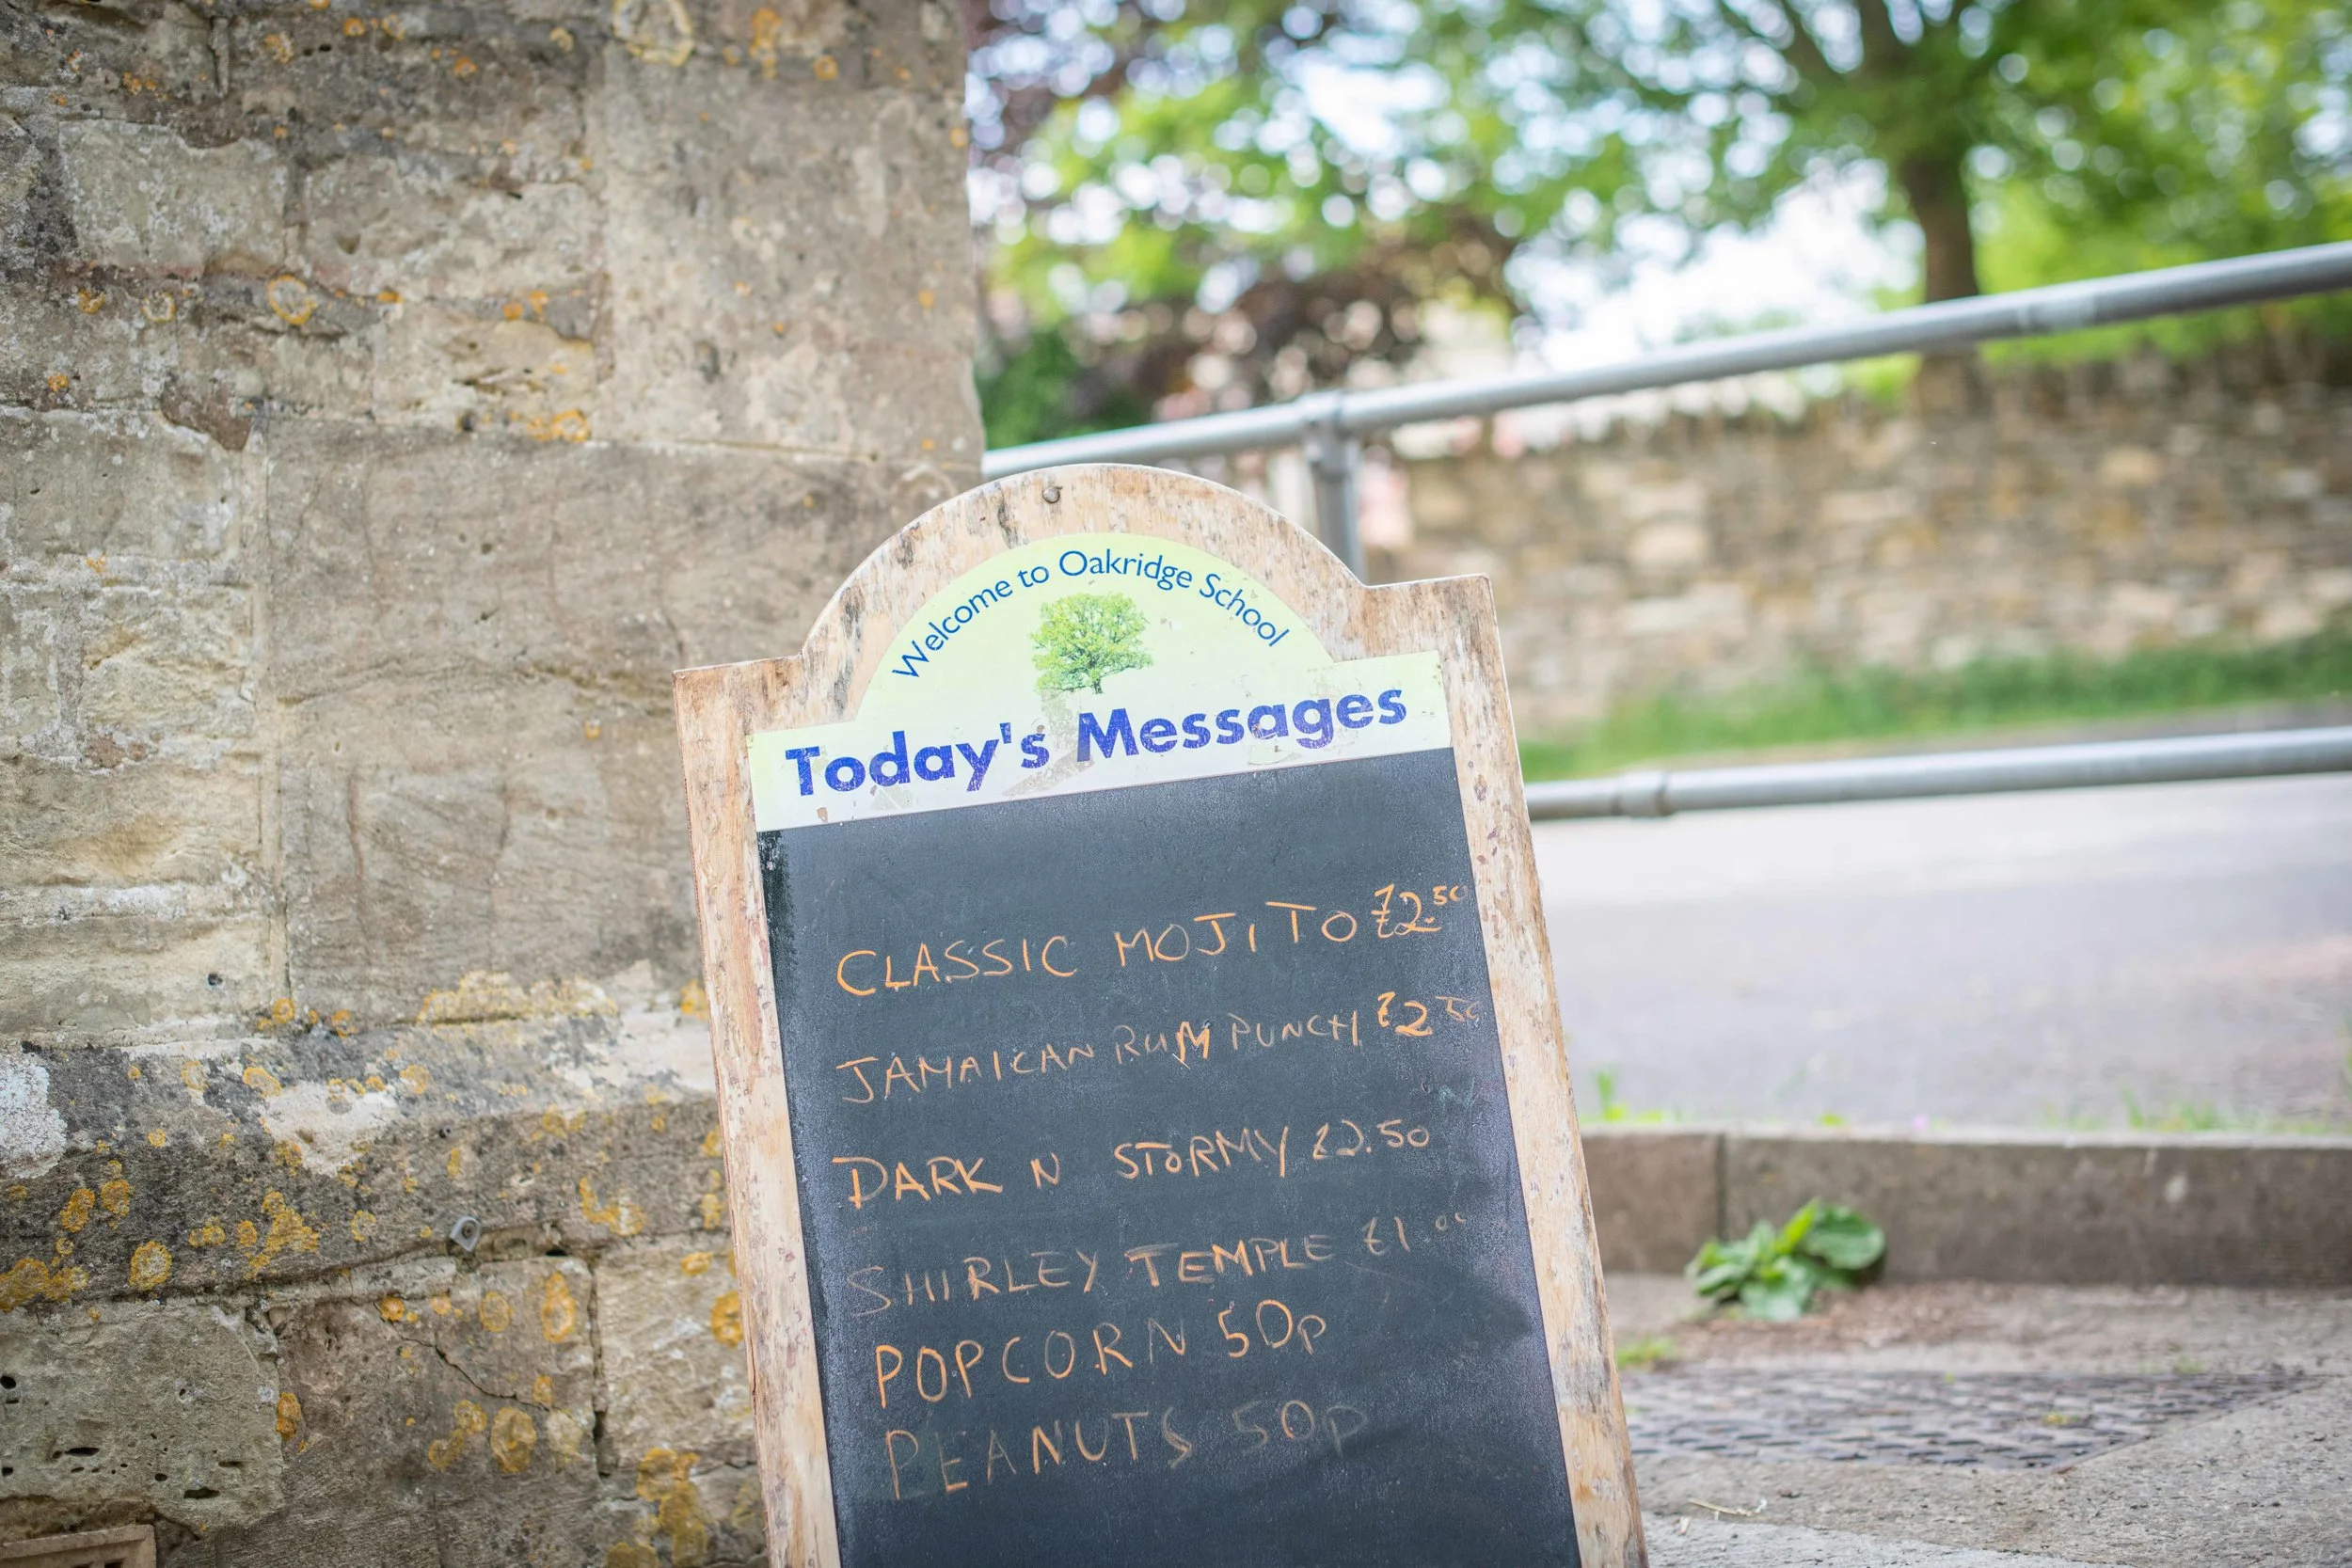 Welcome to Oakridge School
Today's Messages
CLASSIC MOJITO £2.50
JAMAICAN RUM PUNCH £2 50
DARK N STORMY £2.50
SHIRLEY TEMPLE £1.00
POPCORN 50p
PEANUTS 50p